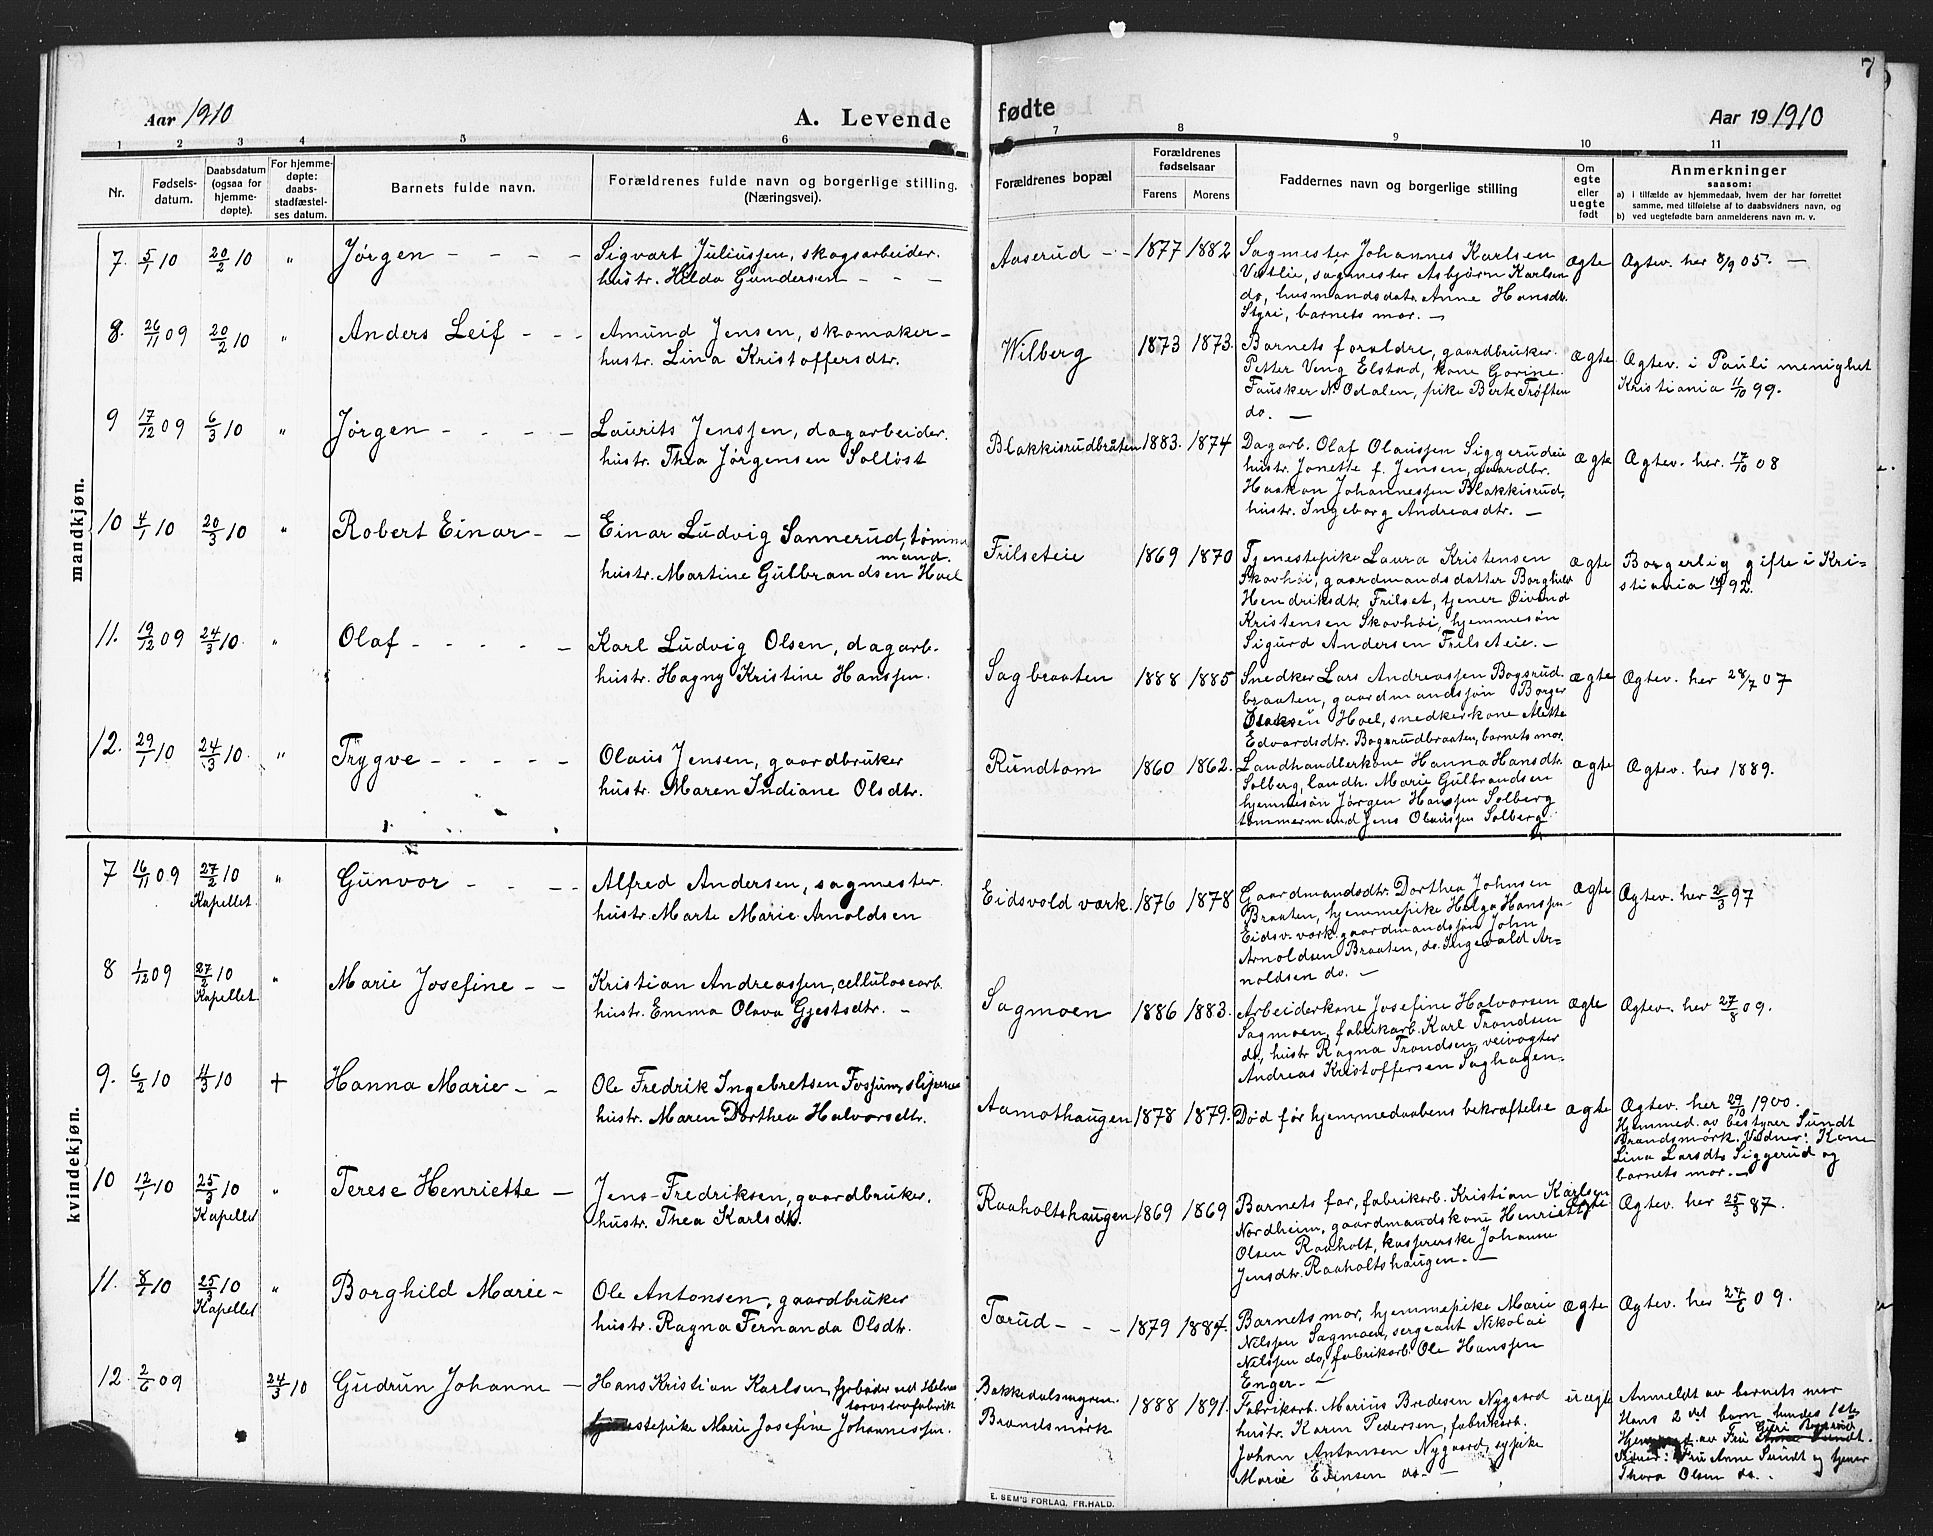 7
Aar 1910
A. Levende fødte
Aar 19 1910
1 2 3 4 5 6 7 8 9 10 11
Nr.
Fødselsdatum.
Daabsdatum (ogsaa for hjemmedøpte).
For hjemmedøpte: daabsstadfæstelses datum.
Barnets fulde navn.
Forældrenes fulde navn og borgerlige stilling.
(Næringsvei).
Forældrenes bopæl
Forældrenes fødselsaar
Farens Morens
Faddernes navn og borgerlige stilling
Om egte eller uegte født
Anmerkninger
saasom:
a) i tilfælde av hjemmedaab, hvem der har forrettet samme, med tilføielse af to daabsvidners navn, og
b) ved uegtefødte barn anmelderens navn m. v.
mandkjøn.
7. 5/1 10 20/2 10 " Jørgen - - - -
Sigvart Juliussen, skogsarbeider.
hustr. Hilda Gundersen - - -
Aaserud - - 1877 1882
Sagmester Johannes Karlsen
Vestlie, sagmester Asbjørn Karlsen
do, husmandsdatr. Anne Hansdtr.
Styri, barnets mor. -
ægte Ægtev. her 8/9 05. -
8. 26/11 09 20/2 10 " Anders Leif - - -
Amund Jensen, skomaker -
hustr. Lina Kristoffersdtr.
Wilberg 1873 1873.
Barnets forældre, gaardbruker.
Petter Veng Elstad, kone Gorine
Fausker N. Odalen, pike Berte Trøften
do. -
ægte Ægtev. i Pauli menighet
Kristiania 11/10 99.
9 17/12 09 6/3 10 " Jørgen - - - -
Laurits Jenssen, dagarbeider.
hustr. Thea Jørgensen Solløst
Blakkisrudbraaten 1883. 1874
Dagarb. Olaf Olaussen Siggerudeie
hustr. Jonette f. Jensen, gaardbr.
Haakon Johannessen Blakkisrud,
hustr. Ingeborg Andreasdtr. -
ægte Ægtev. her. 17/10 08
10 4/1 10 20/3 10 " Robert Einar - -
Einar Ludvig Sannerud, tømmermand.
hustr. Martine Gulbrandsen Hoel
Frilseteie 1869 1870
Tjenestepike Laura Kristensen
Skovhøi, gaardmandsdatter Borghild
Hendriksdtr. Frilset, tjener Øivind
Kristensen Skovhøi, hjemmesøn
Sigurd Andersen Frilseteie. -
ægte Borgerlig gifte i Kristiania 92.
11. 19/12 09 24/3 10. " Olaf - - - - -
Karl Ludvig Olsen, dagarb.
hustr. Hagny Kristine Hanssen.
Sagbraaten 1888 1885
Snedker Lars Andreassen Bogsrudbraaten, gaardmandssøn Borger
Hoel, snedkerkone Alette
Edvardsdtr. Bogsrudbraaten, barnets mor.
ægte Ægtev. her 28/7 07
12. 29/1 10 24/3 10. " Trygve - - - - -
Olaus Jensen, gaardbruker
hustr. Maren Indiane Olsdtr.
Rundtom 1860 1862.
Landhandlerkone Hanna Hansdtr.
Solberg, landh. Marie Gulbrandsen
hjemmesøn Jørgen Hanssen Solberg
tømmermand Jens Olaussen Solberg.
ægte Ægtev. her 1889.
kvindekjøn.
7 16/11 09 27/2 10 Kapellet. " Gunvor - - - -
Alfred Andersen, sagmester.
hustr. Marte Marie Arnoldsen
Eidsvold værk. 1876 1878
Gaardmandsdtr. Dorthea Johnsen
Braaten, hjemmepike Helga Hanssen -
Eidsv. værk. gaardmandssøn John
Arnoldsen Braaten, do. Ingevald Arnoldsen do. -
ægte Ægtev. her 2/3 97
8 1/12 09 27/2 10 Kapellet. " Marie Josefine - -
Kristian Andreassen, cellulosearb.
hustr. Emma Olava Gjestsdtr. -
Sagmoen 1886 1883.
Arbeiderkone Josefine Halvorsen
Sagmoen, fabrikarb. Karl Trondsen
do, hustr. Ragna Trondsen, veivogter
Andreas Kristoffersen Saghagen.
ægte Ægtev. her 27/8 09.
9. 6/2 10 4/3 10 + Hanna Marie - -
Ole Fredrik Ingebretsen Fossum,
hustr. Maren Dorthea Halvorsdtr.
Aamothaugen 1878 1879.
Død før hjemmedaabens bekræftelse ægte
Ægtev. her 29/10 1900.
Hjemmed. av bestyrer Sundt
Brandsmørk. Vidner: Kone
Lina Larsdtr. Siggerud og
barnets mor. -
10 12/1 10 25/3 10 Kapellet " Terese Henriette -
Jens Fredriksen, gaardbruker.
hustr. Thea Karlsdtr.
Raaholtshaugen 1869 1869
Barnets far, fabrikarb. Kristian Karlsen
Nordheim, gaardmandskone Henriette
Olsen Raaholt, kassererske Johanne
Jensdtr. Raaholtshaugen. -
ægte Ægtev. her 25/3 87.
11. 8/1 10 25/3 10 Kapellet " Borghild Marie -
Ole Antonsen, gaardbruker
hustr. Ragna Fernanda Olsdtr.
Tærud - - - 1879 1884.
Barnets mor, hjemmepike Marie
Nilssen Sagmoen, sergeant Nikolai
Nilssen do, fabrikarb. Ole Hanssen
Enger. -
ægte Ægtev. her 24/6 09.
12. 2/6 09 24/3 10 Gudrun Johanne -
Hans Kristian Karlsen, fyrbøder ved
torvstrøfabrik
tjenestepike Marie Josefine Johannessen.
Bakkedalsmyren
Brandsmørk 1888 1891.
Fabrikarb. Marius Bredesen Nygaard
hustr. Karen Pedersen, fabrikarb.
Johan Antonsen Nygaard, sypike
Marie Evensen do. -
uægte Anmeldt av barnets mor
Hans 2det barn, hendes 1ste
Hjemmed. av Fru
Vidner: Fru Anne Sundt og tjener
Thora Olsen do.
E. SEM'S FORLAG, FR.HALD.